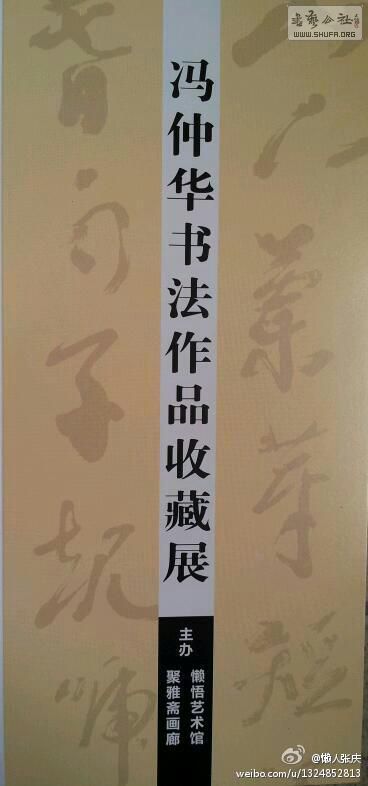 书艺公社
WWW.SHUFA.ORG
山下蘭芽短
冯仲华书法作品收藏展
主办
懒悟艺术馆
聚雅斋画廊
暮雨子規啼
@懒人张庆
weibo.com/u/1324852813